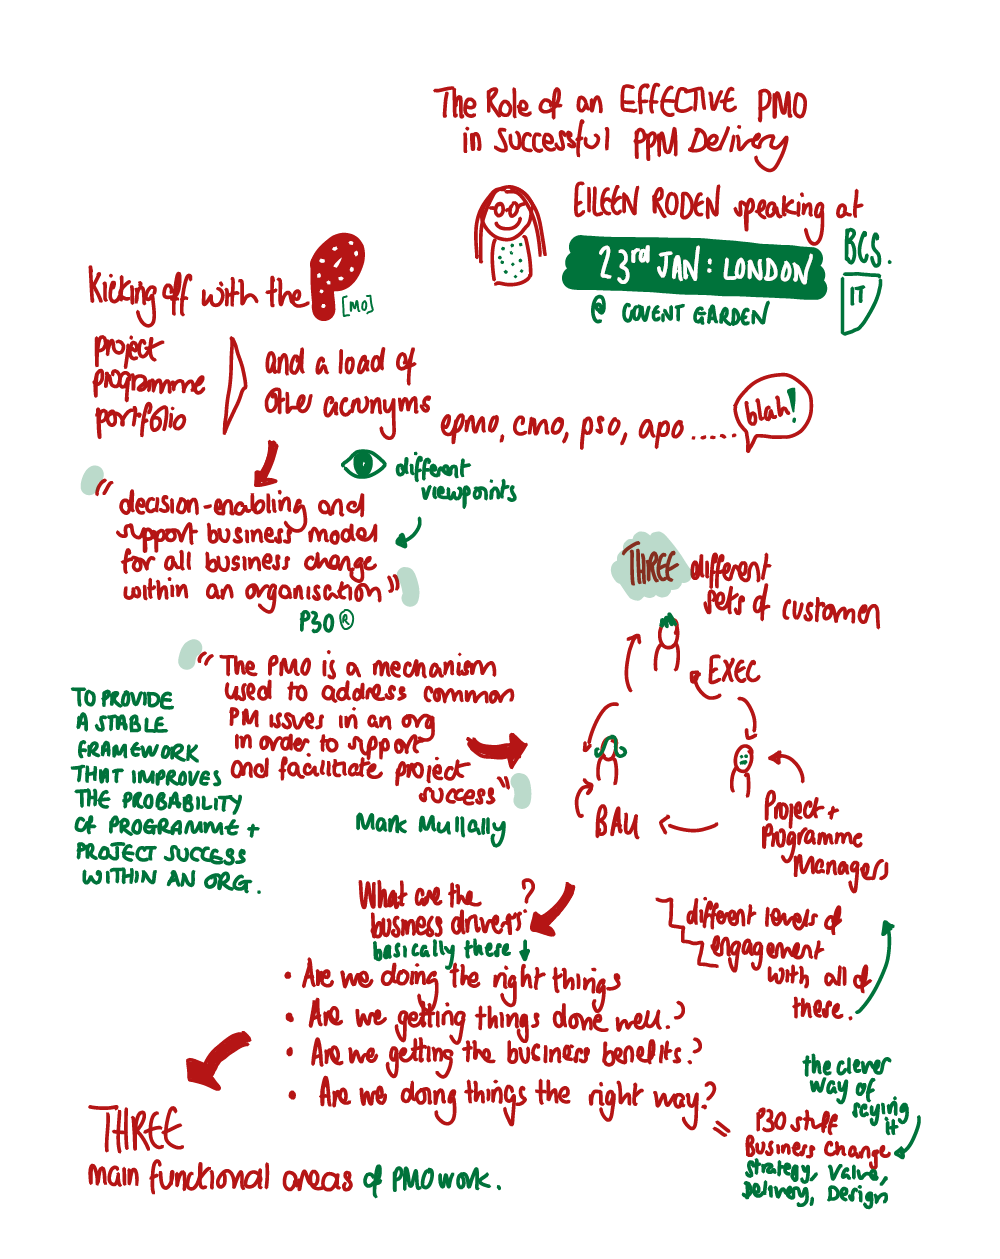 The Role of an EFFECTIVE PMO
in Successful PPM Delivery
EILEEN RODEN speaking at
BCS.
IT
23rd JAN: LONDON
@ COVENT GARDEN
Kicking off with the
[MO]
project
programme
portfolio
and a load of
other acronyms
epmo, cmo, pso, apo ......
blah!
different
viewpoints
"decision-enabling and
support business model
for all business change
within an organisation"
P30®
"The PMO is a mechanism
used to address common
PM issues in an org
in order to support
and facilitate project
success"
Mark Mullally
TO PROVIDE
A STABLE
FRAMEWORK
THAT IMPROVES
THE PROBABILITY
OF PROGRAMME +
PROJECT SUCCESS
WITHIN AN ORG.
THREE different
sets of customer
EXEC
Project +
Programme
Managers
BAU
different levels of
engagement
with all of
these.
What are the
business drivers?
basically these
• Are we doing the right things
• Are we getting things done well?
• Are we getting the business benefits?
• Are we doing things the right way?
the clever
way of
saying
it
= P30 stuff
Business Change
Strategy, Value,
Delivery, Design
THREE
main functional areas of PMO work.